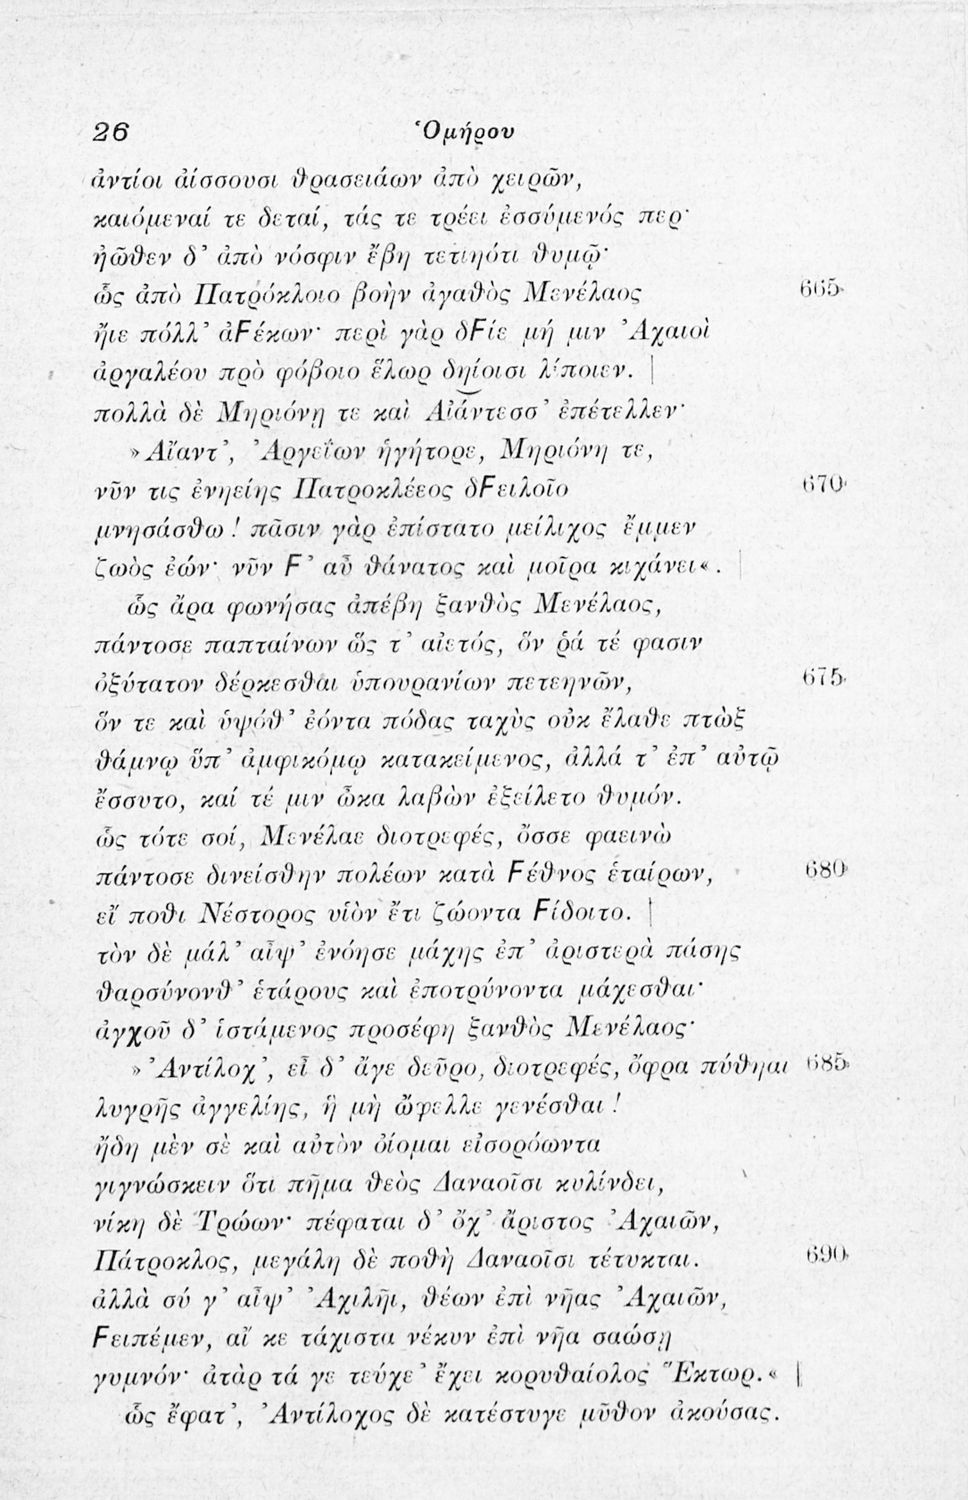 26 Ὁμήρου
ἀντίοι ἀίσσουσι θρασειάων ἀπὸ χειρῶν,
καιόμεναί τε δεταί, τάς τε τρέει ἐσσύμενός περ·
ἠῶθεν δ᾽ ἀπὸ νόσφιν ἔβη τετιηότι θυμῷ·
ὣς ἀπὸ Πατρόκλοιο βοὴν ἀγαθὸς Μενέλαος 665
ἤιε πόλλ᾽ ἀϜέκων· περὶ γὰρ δϜίε μή μιν Ἀχαιοὶ
ἀργαλέου πρὸ φόβοιο ἕλωρ δηίοισι λίποιεν. |
πολλὰ δὲ Μηριόνῃ τε καὶ Αἰάντεσσ᾽ ἐπέτελλεν·
»Αἴαντ᾽, Ἀργεΐων ἡγήτορε, Μηριόνη τε,
νῦν τις ἐνηείης Πατροκλέεος δϜειλοῖο 670
μνησάσθω! πᾶσιν γὰρ ἐπίστατο μείλιχος ἔμμεν
ζωὸς ἐών· νῦν Ϝ᾽ αὖ θάνατος καὶ μοῖρα κιχάνει«. |
ὣς ἄρα φωνήσας ἀπέβη ξανθὸς Μενέλαος,
πάντοσε παπταίνων ὥς τ᾽ αἰετός, ὅν ῥά τέ φασιν
ὀξύτατον δέρκεσθαι ὑπουρανίων πετεηνῶν, 675
ὅν τε καὶ ὑψόθ᾽ ἐόντα πόδας ταχὺς οὐκ ἔλαθε πτὼξ
θάμνῳ ὕπ᾽ ἀμφικόμῳ κατακείμενος, ἀλλά τ᾽ ἐπ᾽ αὐτῷ
ἔσσυτο, καί τέ μιν ὦκα λαβὼν ἐξείλετο θυμόν.
ὣς τότε σοί, Μενέλαε διοτρεφές, ὄσσε φαεινὼ
πάντοσε δινείσθην πολέων κατὰ Ϝέθνος ἑταίρων, 680
εἴ ποθι Νέστορος υἱὸν ἔτι ζώοντα Ϝίδοιτο. |
τὸν δὲ μάλ᾽ αἶψ᾽ ἐνόησε μάχης ἐπ᾽ ἀριστερὰ πάσης
θαρσύνονθ᾽ ἑτάρους καὶ ἐποτρύνοντα μάχεσθαι·
ἀγχοῦ δ᾽ ἱστάμενος προσέφη ξανθὸς Μενέλαος·
»Ἀντίλοχ᾽, εἶ δ᾽ ἄγε δεῦρο, διοτρεφές, ὄφρα πύθηαι 685
λυγρῆς ἀγγελίης, ἣ μὴ ὤφελλε γενέσθαι!
ἤδη μὲν σὲ καὶ αὐτὸν ὀίομαι εἰσορόωντα
γιγνώσκειν ὅτι πῆμα θεὸς Δαναοῖσι κυλίνδει,
νίκη δὲ Τρώων· πέφαται δ᾽ ὄχ᾽ ἄριστος Ἀχαιῶν,
Πάτροκλος, μεγάλη δὲ ποθὴ Δαναοῖσι τέτυκται. 690
ἀλλὰ σύ γ᾽ αἶψ᾽ Ἀχιλῆι, θέων ἐπὶ νῆας Ἀχαιῶν,
Ϝειπέμεν, αἴ κε τάχιστα νέκυν ἐπὶ νῆα σαώσῃ
γυμνόν· ἀτὰρ τά γε τεύχε᾽ ἔχει κορυθαίολος Ἕκτωρ.« |
ὣς ἔφατ᾽, Ἀντίλοχος δὲ κατέστυγε μῦθον ἀκούσας.